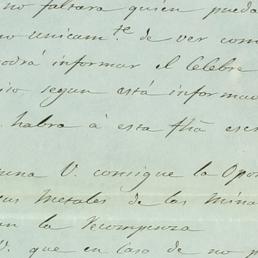 no faltara quien pueda
unicam.te de ver com
odrá informar el Celebre
segun está informa
habra á esta fhã esc
una V. consigue la Opor
Metales de las Mina
la Recompensa
V. que en caso de no p